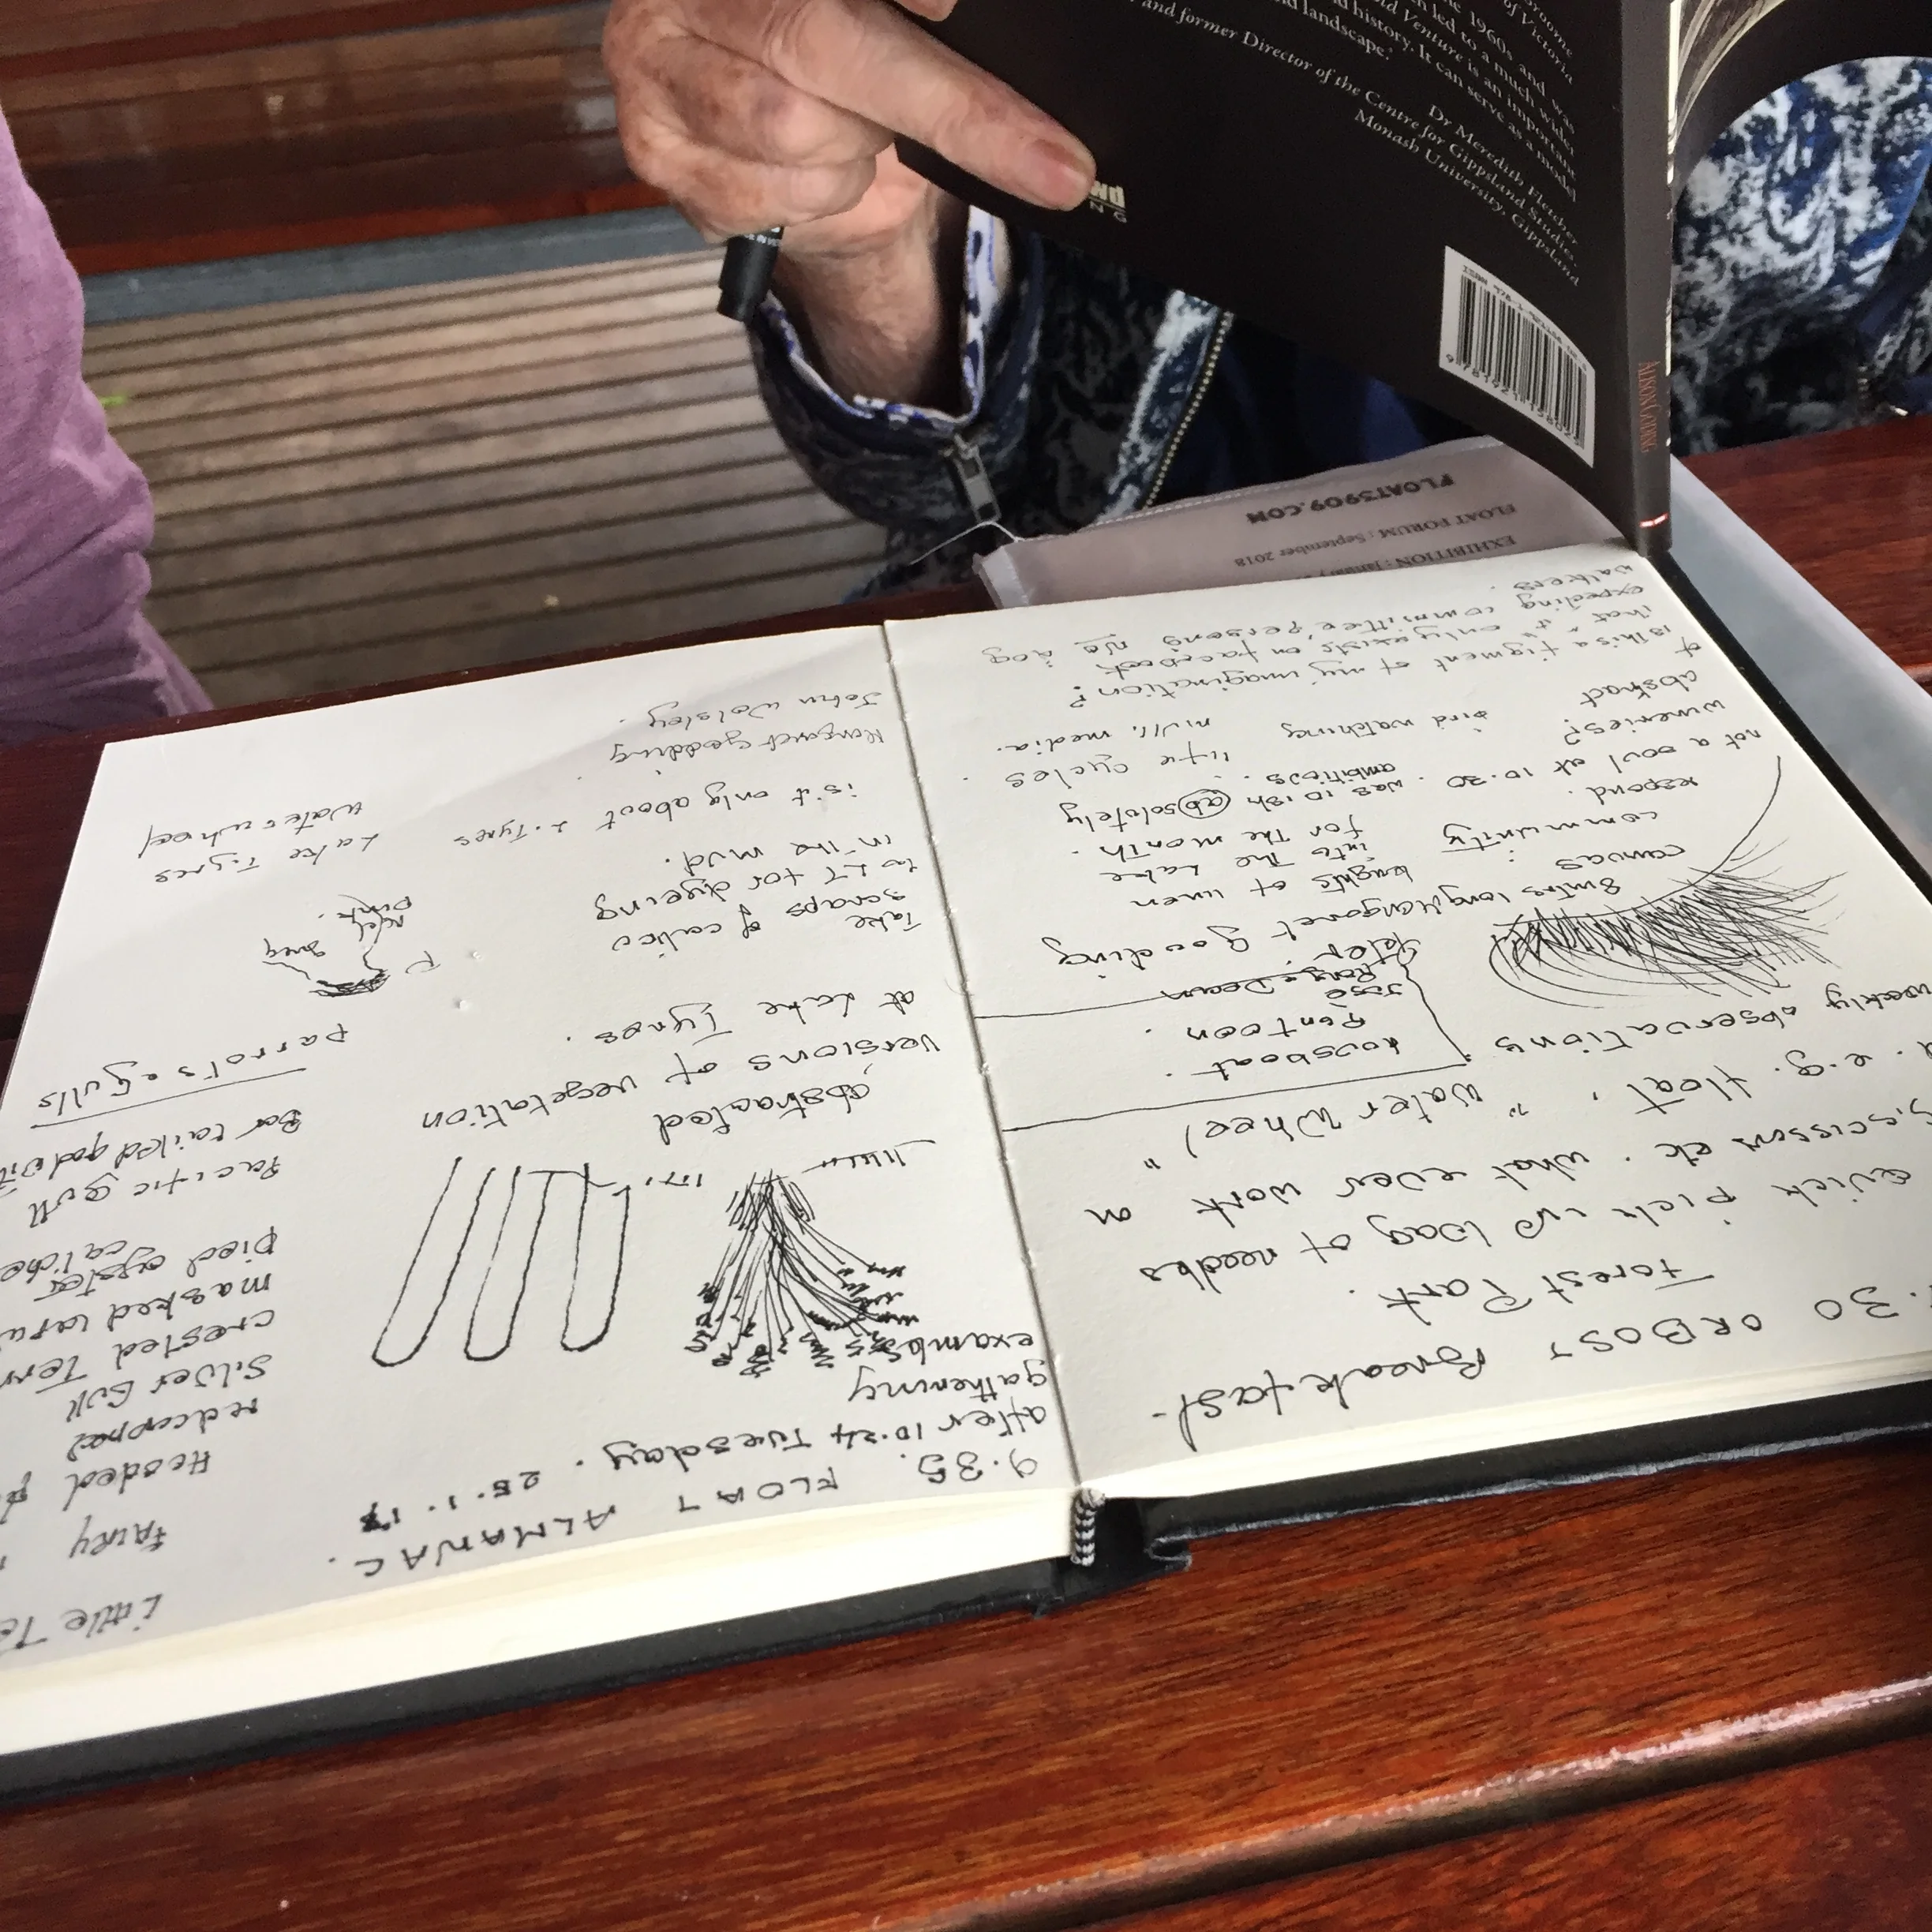 roome
of Victoria
e 1960s and was
n led to a much wider
ld Venture is an important
d history. It can serve as a model
d landscape.'
Dr Meredith Fletcher
and former Director of the Centre for Gippsland Studies,
Monash University, Gippsland
ALISON GOODING
FLOAT3909.COM
FLOAT FORUM : September 2018
EXHIBITION : January
.30 ORBOST Breakfast.
Forest Park.
Quick pick up bag of needles
scissors etc. what ever work on
e.g. float, "water wheel"
weekly observations
housboat.
Pontoon.
Margaret Gooding
8 mtrs long
lenghts of linen
canvas
into the Lake
community :
for the month.
respond.
was 10ish absolutely
not a soul at 10.30.
ambitios.
life cycles.
wineries?
bird watching
mult. media.
abstract
is this a figment of my imagination?
that it only exists on facebook
expeding committee persons no dog
walkers.
9.35. FLOAT ALMANAC.
after 10.24 Tuesday. 25.1.17
gathering
examples
abstracted
versions of vegetation
at Lake Tyres.
Take scraps of calico
to LT for dyeing
in the mud.
is it only about L.Tyres
Margaret Gooding
John Wolsley.
Little Te
FAIRY
Hooded P
redcapped
Silver Gull
crested Tern
masked lapw
pied oyster
catche
Pacific gull
Bar tailed godwit
parrots & gulls
P
grey
pink.
Lake Tyres
Waterwheel